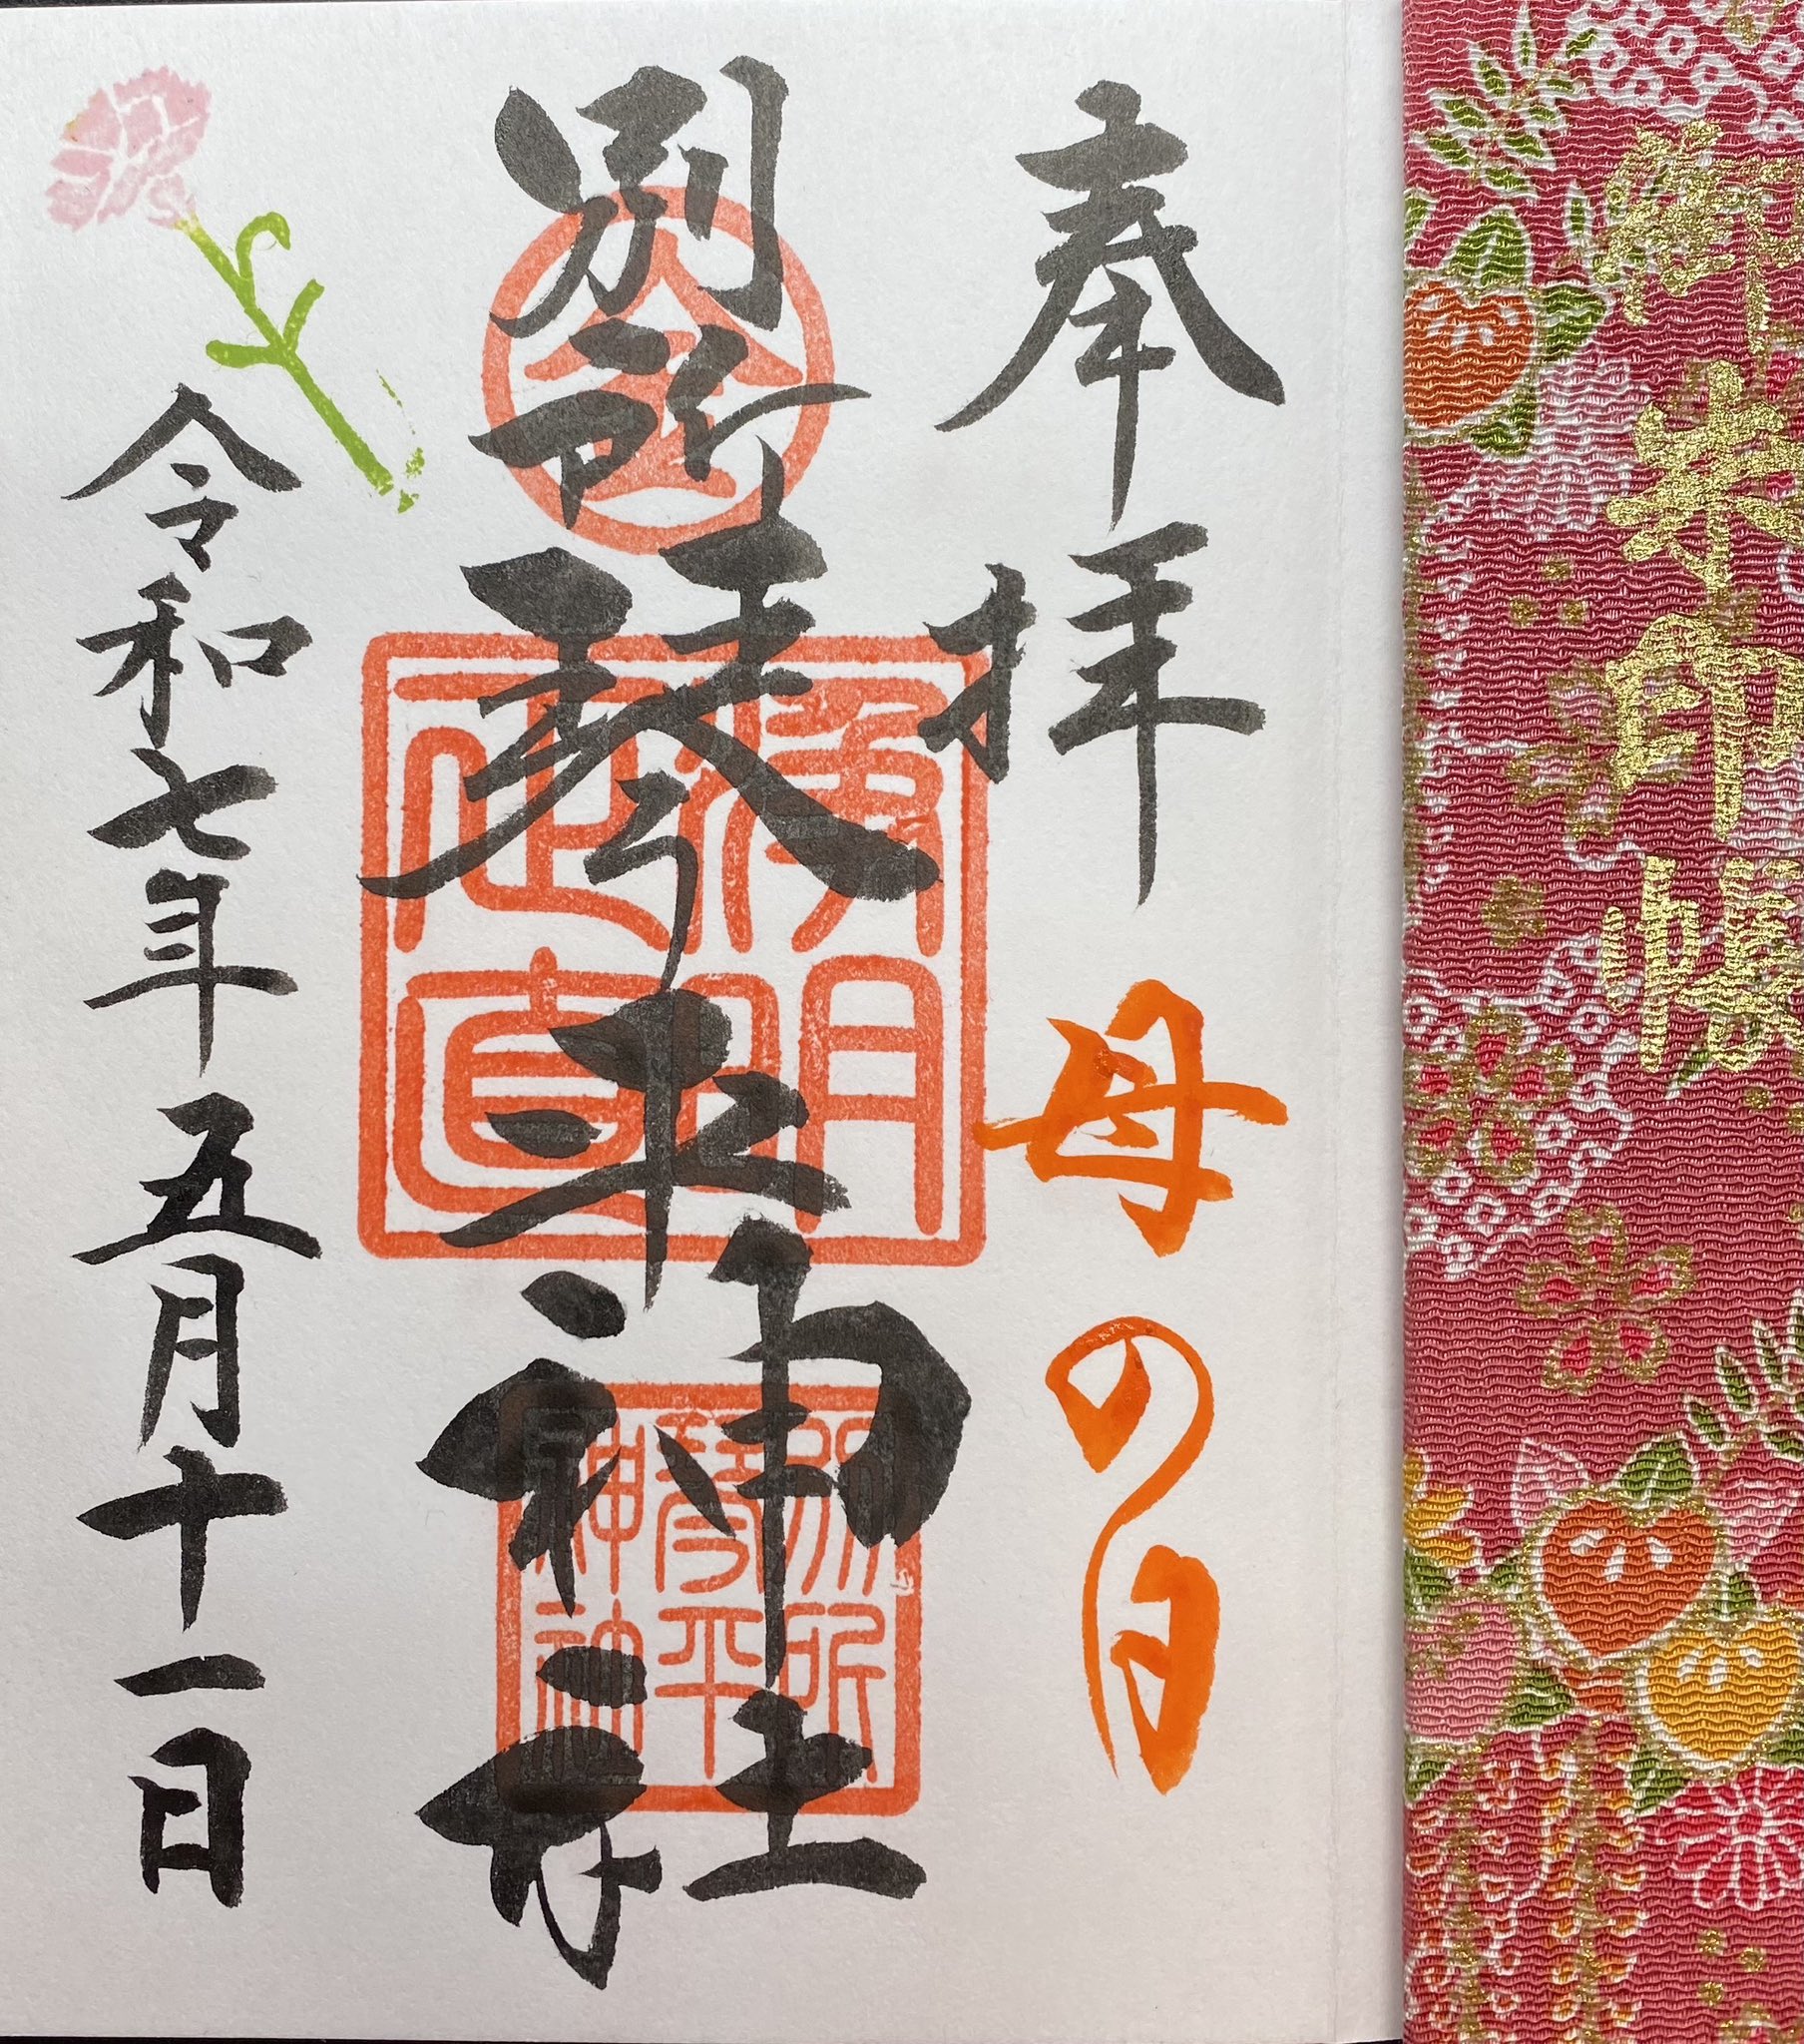 御朱印帳
奉拝 母の日
別所琴平神社
金
淨明
正直
別所
琴平
神社
令和七年 五月十一日